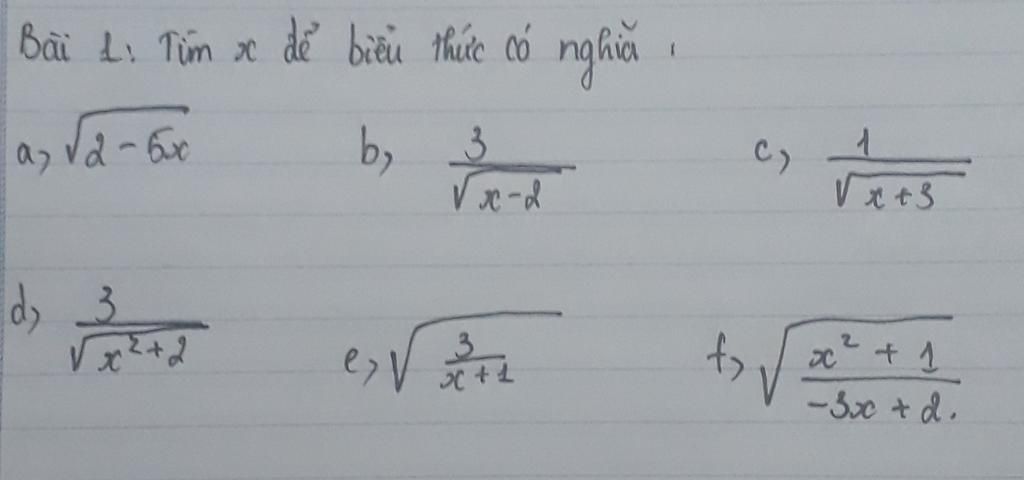 Bài 1: Tìm x để biểu thức có nghĩa.
a, √(2 - 5x) b, 3/√(x-2) c, 1/√(x+3)
d, 3/√(x²+2) e, √(3/(x+1)) f, √((x² + 1)/(-3x + 2)).